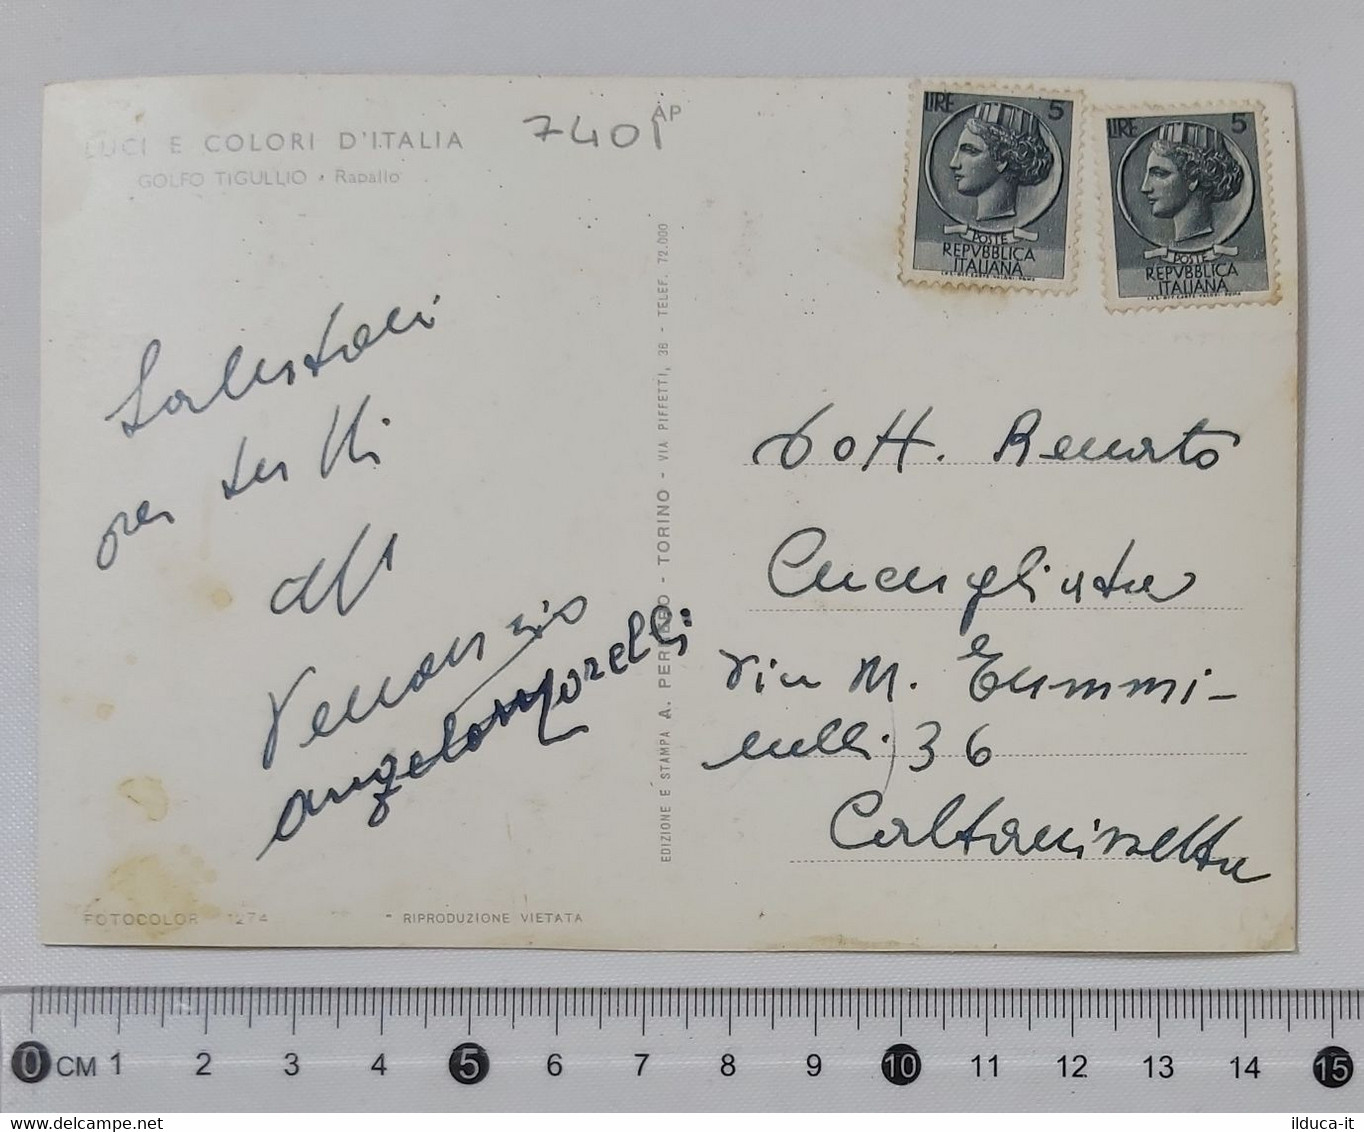 LUCI E COLORI D'ITALIA
GOLFO TIGULLIO • Rapallo
7401
AP
LIRE 5
POSTE
REPVBBLICA
ITALIANA
LIRE 5
POSTE
REPVBBLICA
ITALIANA
Salutoni
per tutti
Venanzio
Angelo Morelli
EDIZIONE E STAMPA A. PERINGO - TORINO - VIA PIFFETTI, 36 - TELEF. 72.000
Dott. Renato
Via M.
36
Caltanissetta
FOTOCOLOR 1274
RIPRODUZIONE VIETATA
0 CM 1 2 3 4 5 6 7 8 9 10 11 12 13 14 15
ilduca-it